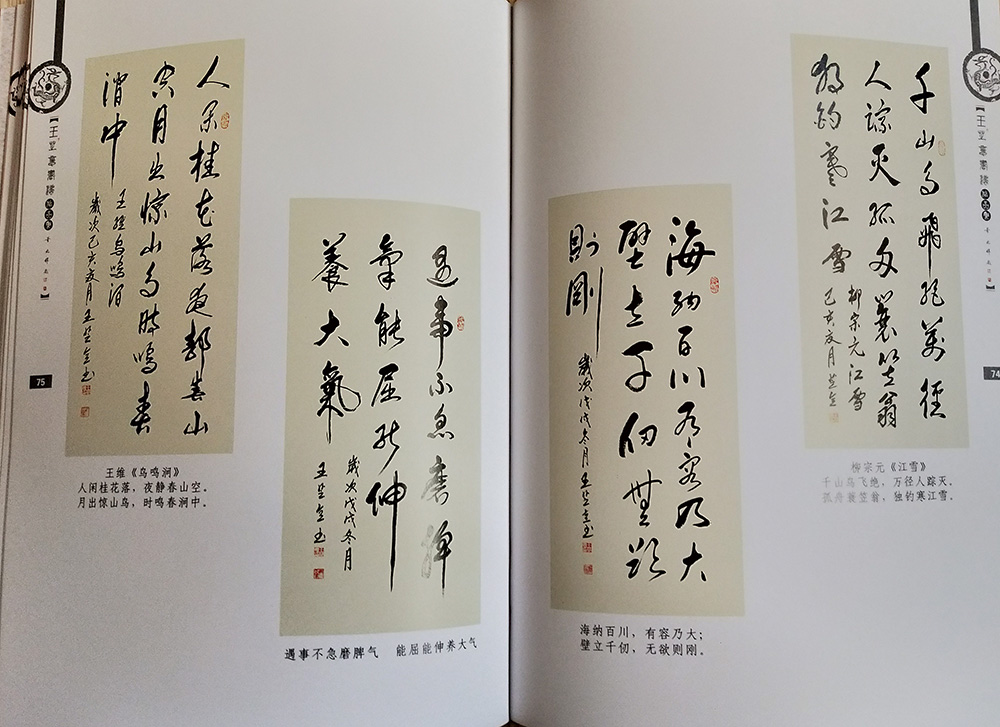 千山鸟飛绝萬径
人踪灭孤舟蓑笠翁
独钓寒江雪
柳宗元江雪
己亥夏月
柳宗元《江雪》
千山鸟飞绝，万径人踪灭。
孤舟蓑笠翁，独钓寒江雪。
74
海纳百川有容乃大
壁立千仞無欲
則剛
歲次戊戌冬月
海纳百川，有容乃大；
壁立千仞，无欲则刚。
遇事不急磨脾
氣能屈能伸
養大氣
歲次戊戌冬月
遇事不急磨脾气 能屈能伸养大气
人闲桂花落夜静春山
空月出惊山鸟時鳴春
涧中
王維鸟鳴涧
歲次己亥夏月
王维《鸟鸣涧》
人闲桂花落，夜静春山空。
月出惊山鸟，时鸣春涧中。
75